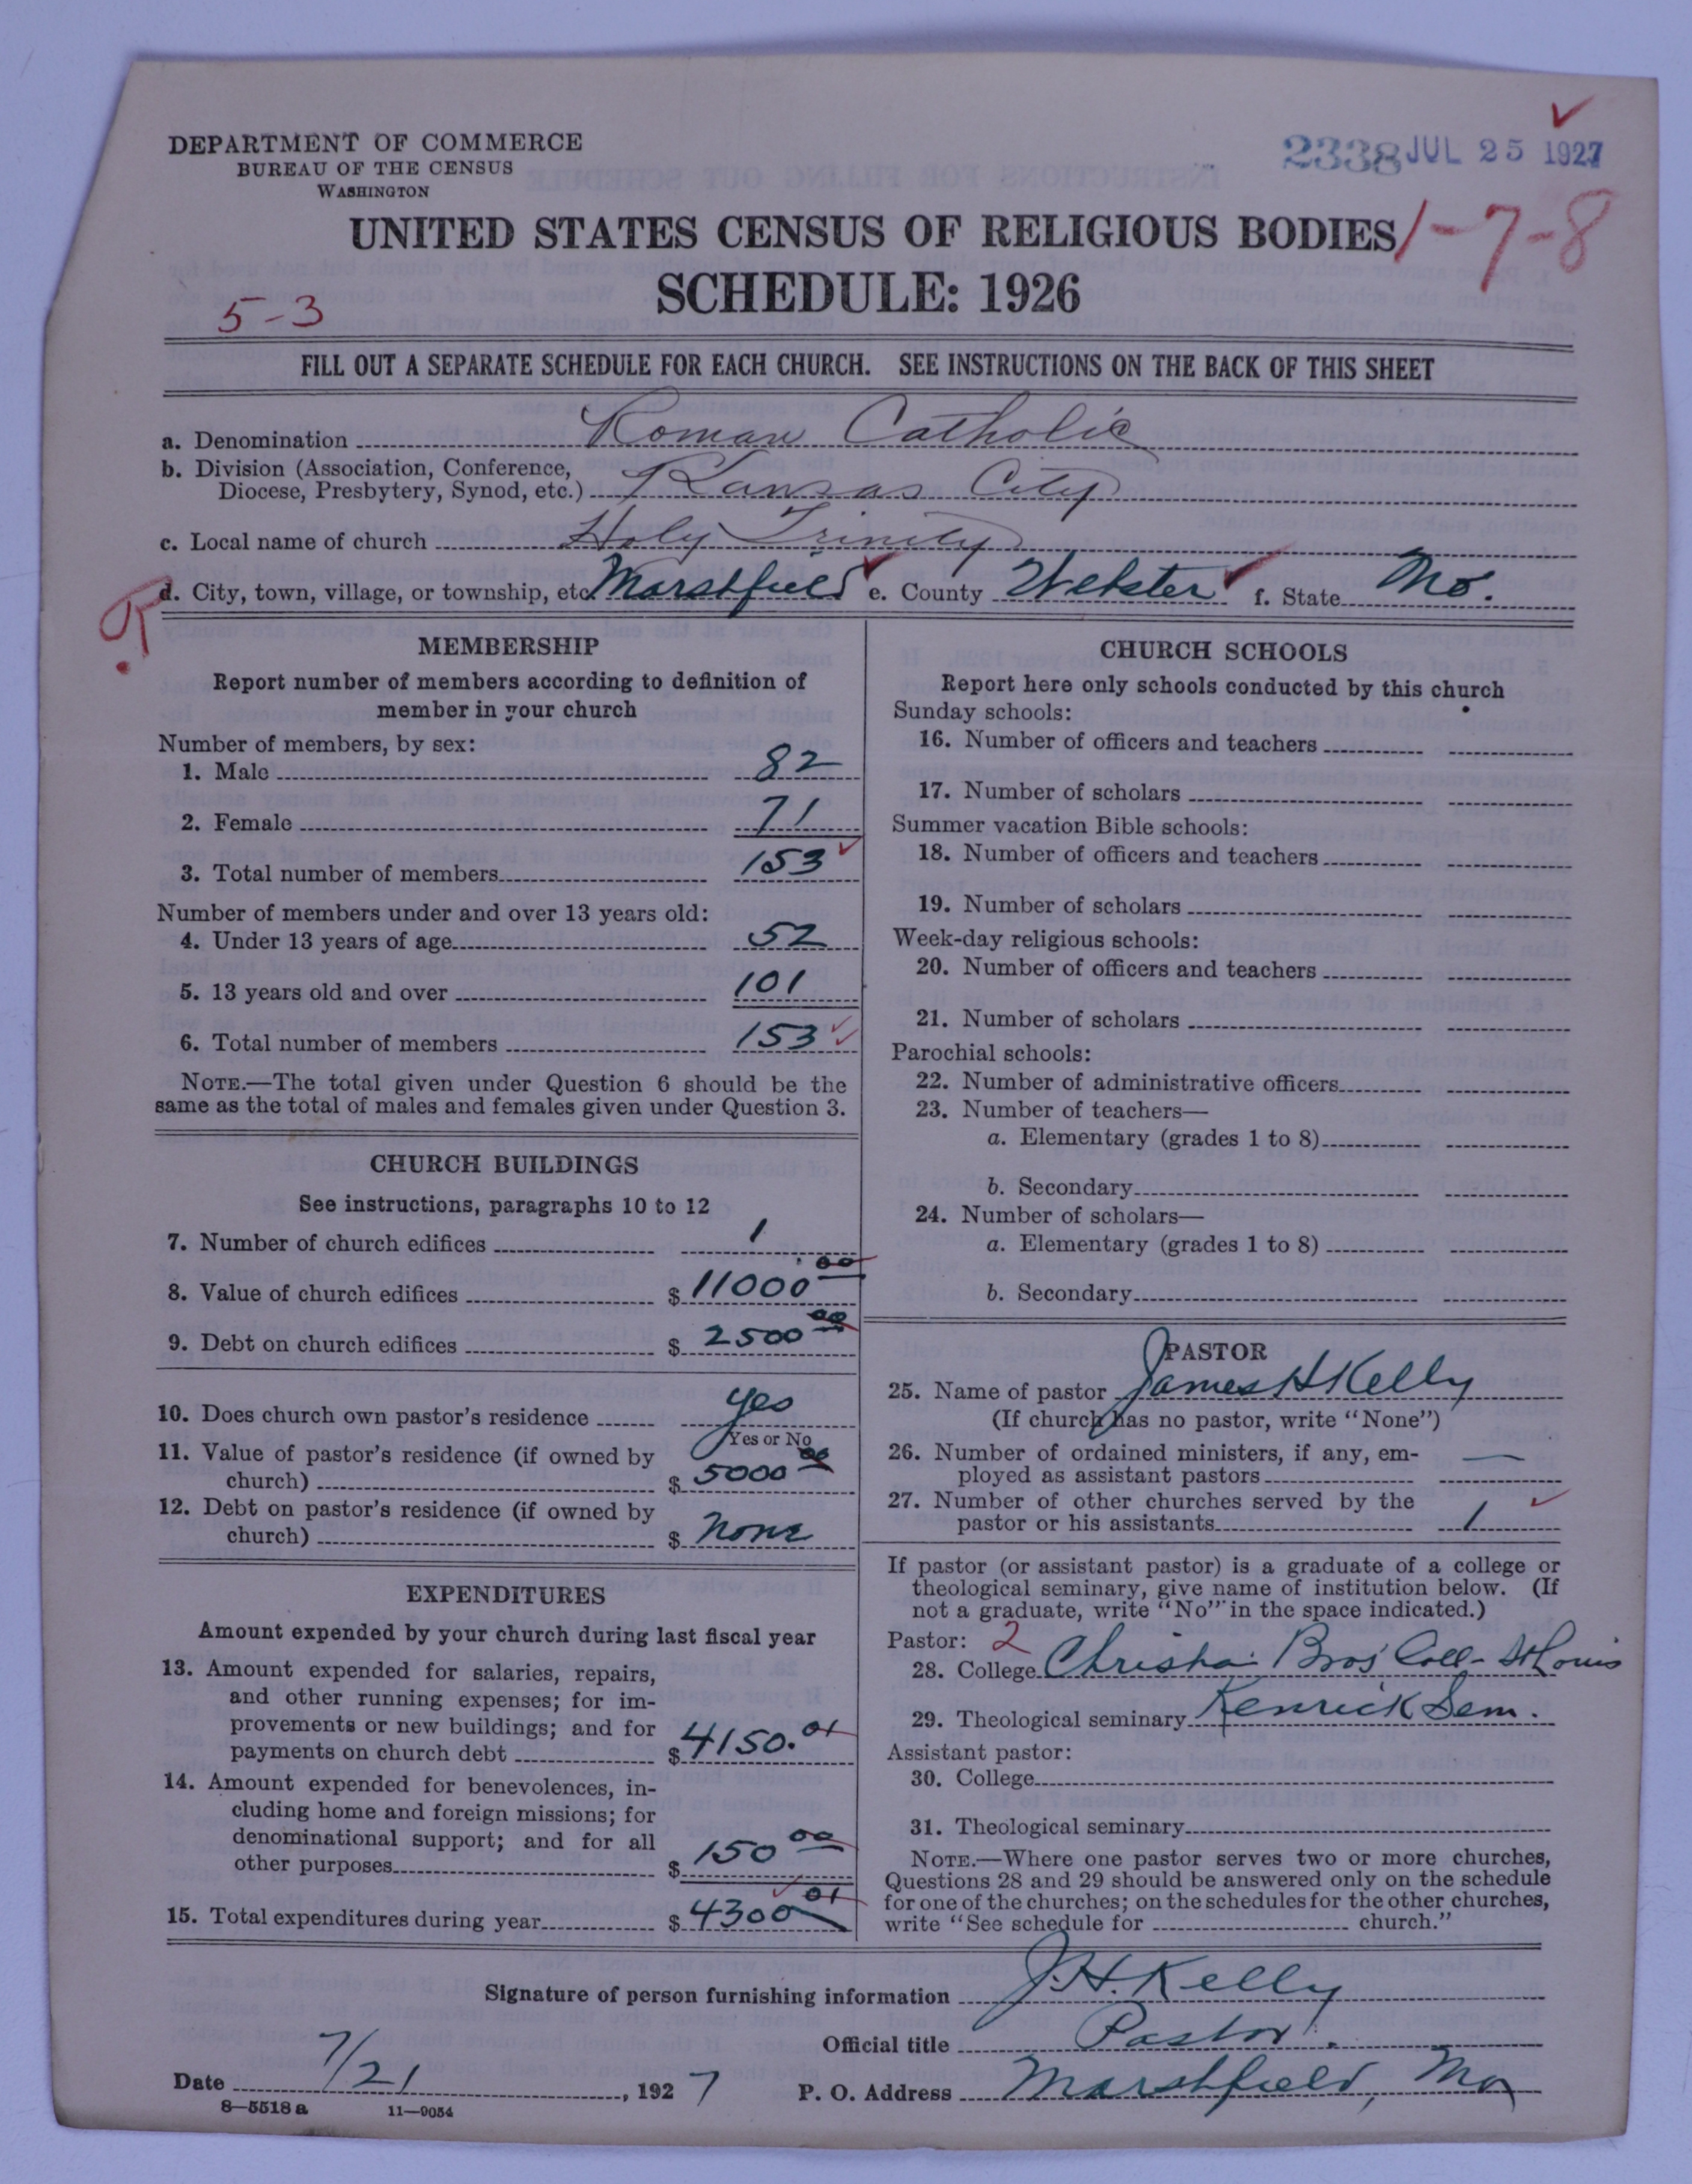 DEPARTMENT OF COMMERCE
BUREAU OF THE CENSUS
WASHINGTON
2338 JUL 25 1927
UNITED STATES CENSUS OF RELIGIOUS BODIES
1-7-8
SCHEDULE: 1926
5-3
FILL OUT A SEPARATE SCHEDULE FOR EACH CHURCH. SEE INSTRUCTIONS ON THE BACK OF THIS SHEET
a. Denomination Roman Catholic
b. Division (Association, Conference,
Diocese, Presbytery, Synod, etc.) Kansas City
c. Local name of church Holy Trinity
d. City, town, village, or township, etc. Marshfield e. County Webster f. State Mo.
MEMBERSHIP
Report number of members according to definition of
member in your church
Number of members, by sex:
1. Male 82
2. Female 71
3. Total number of members 153
Number of members under and over 13 years old:
4. Under 13 years of age 52
5. 13 years old and over 101
6. Total number of members 153
NOTE.—The total given under Question 6 should be the
same as the total of males and females given under Question 3.
CHURCH BUILDINGS
See instructions, paragraphs 10 to 12
7. Number of church edifices 1
8. Value of church edifices $ 11000 00
9. Debt on church edifices $ 2500 00
10. Does church own pastor's residence yes
Yes or No
11. Value of pastor's residence (if owned by
church) $ 5000 00
12. Debt on pastor's residence (if owned by
church) $ none
EXPENDITURES
Amount expended by your church during last fiscal year
13. Amount expended for salaries, repairs,
and other running expenses; for im-
provements or new buildings; and for
payments on church debt $ 4150.01
14. Amount expended for benevolences, in-
cluding home and foreign missions; for
denominational support; and for all
other purposes $ 150 00
15. Total expenditures during year $ 4300 01
CHURCH SCHOOLS
Report here only schools conducted by this church
Sunday schools:
16. Number of officers and teachers
17. Number of scholars
Summer vacation Bible schools:
18. Number of officers and teachers
19. Number of scholars
Week-day religious schools:
20. Number of officers and teachers
21. Number of scholars
Parochial schools:
22. Number of administrative officers
23. Number of teachers—
a. Elementary (grades 1 to 8)
b. Secondary
24. Number of scholars—
a. Elementary (grades 1 to 8)
b. Secondary
PASTOR
25. Name of pastor James H Kelly
(If church has no pastor, write "None")
26. Number of ordained ministers, if any, em-
ployed as assistant pastors —
27. Number of other churches served by the
pastor or his assistants 1
If pastor (or assistant pastor) is a graduate of a college or
theological seminary, give name of institution below. (If
not a graduate, write "No" in the space indicated.)
Pastor: 2
28. College Christia. Bros' Coll- St Louis
29. Theological seminary Kenrick Sem.
Assistant pastor:
30. College
31. Theological seminary
NOTE.—Where one pastor serves two or more churches,
Questions 28 and 29 should be answered only on the schedule
for one of the churches; on the schedules for the other churches,
write "See schedule for church."
Signature of person furnishing information J. H. Kelly
Official title Pastor.
Date 7/21, 1927 P. O. Address Marshfield, Mo
8—5518 a 11—9054